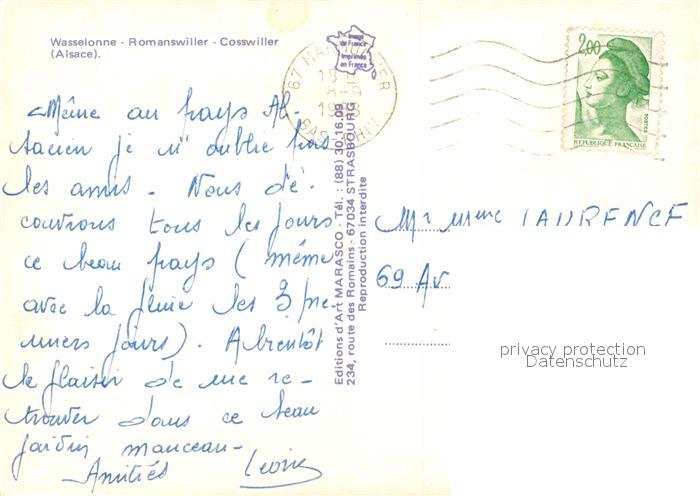 Wasselonne - Romanswiller - Cosswiller
(Alsace).
Image
de France
Imprimée
en France
67 MARMOUTIER
BAS RHIN
2,00
POSTES
REPUBLIQUE FRANÇAISE
Même au pays Al-
sacien je n'oublie pas
les amis - Nous dé-
couvrons tous les jours
ce beau pays (même
avec la pluie les 3 pre
miers jours). A bientôt
le plaisir de me re-
trouver dans ce beau
jardin manceau -
Amitiés
Editions d'Art MARASCO - Tél. : (88) 30.16.09
234, route des Romains - 67034 STRASBOURG
Reproduction interdite
Mr Mme LAURENCE
69 Av
privacy protection
Datenschutz